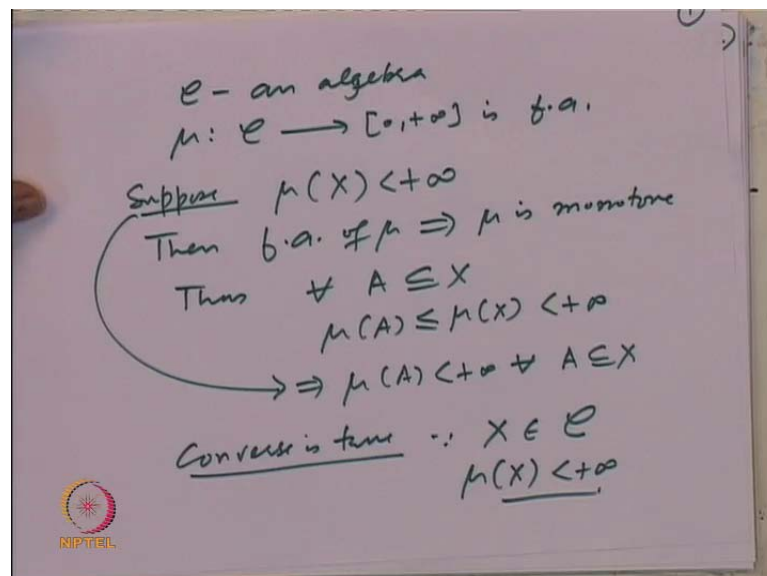 ①
C - an algebra
μ: C ⟶ [0,+∞] is f.a.
Suppose μ(X) < +∞
Then f.a. of μ ⇒ μ is monotone
Thus ∀ A ⊆ X
μ(A) ≤ μ(X) < +∞
⇒ μ(A) < +∞ ∀ A ⊆ X
Converse is true ∵ X ∈ C
μ(X) < +∞
NPTEL